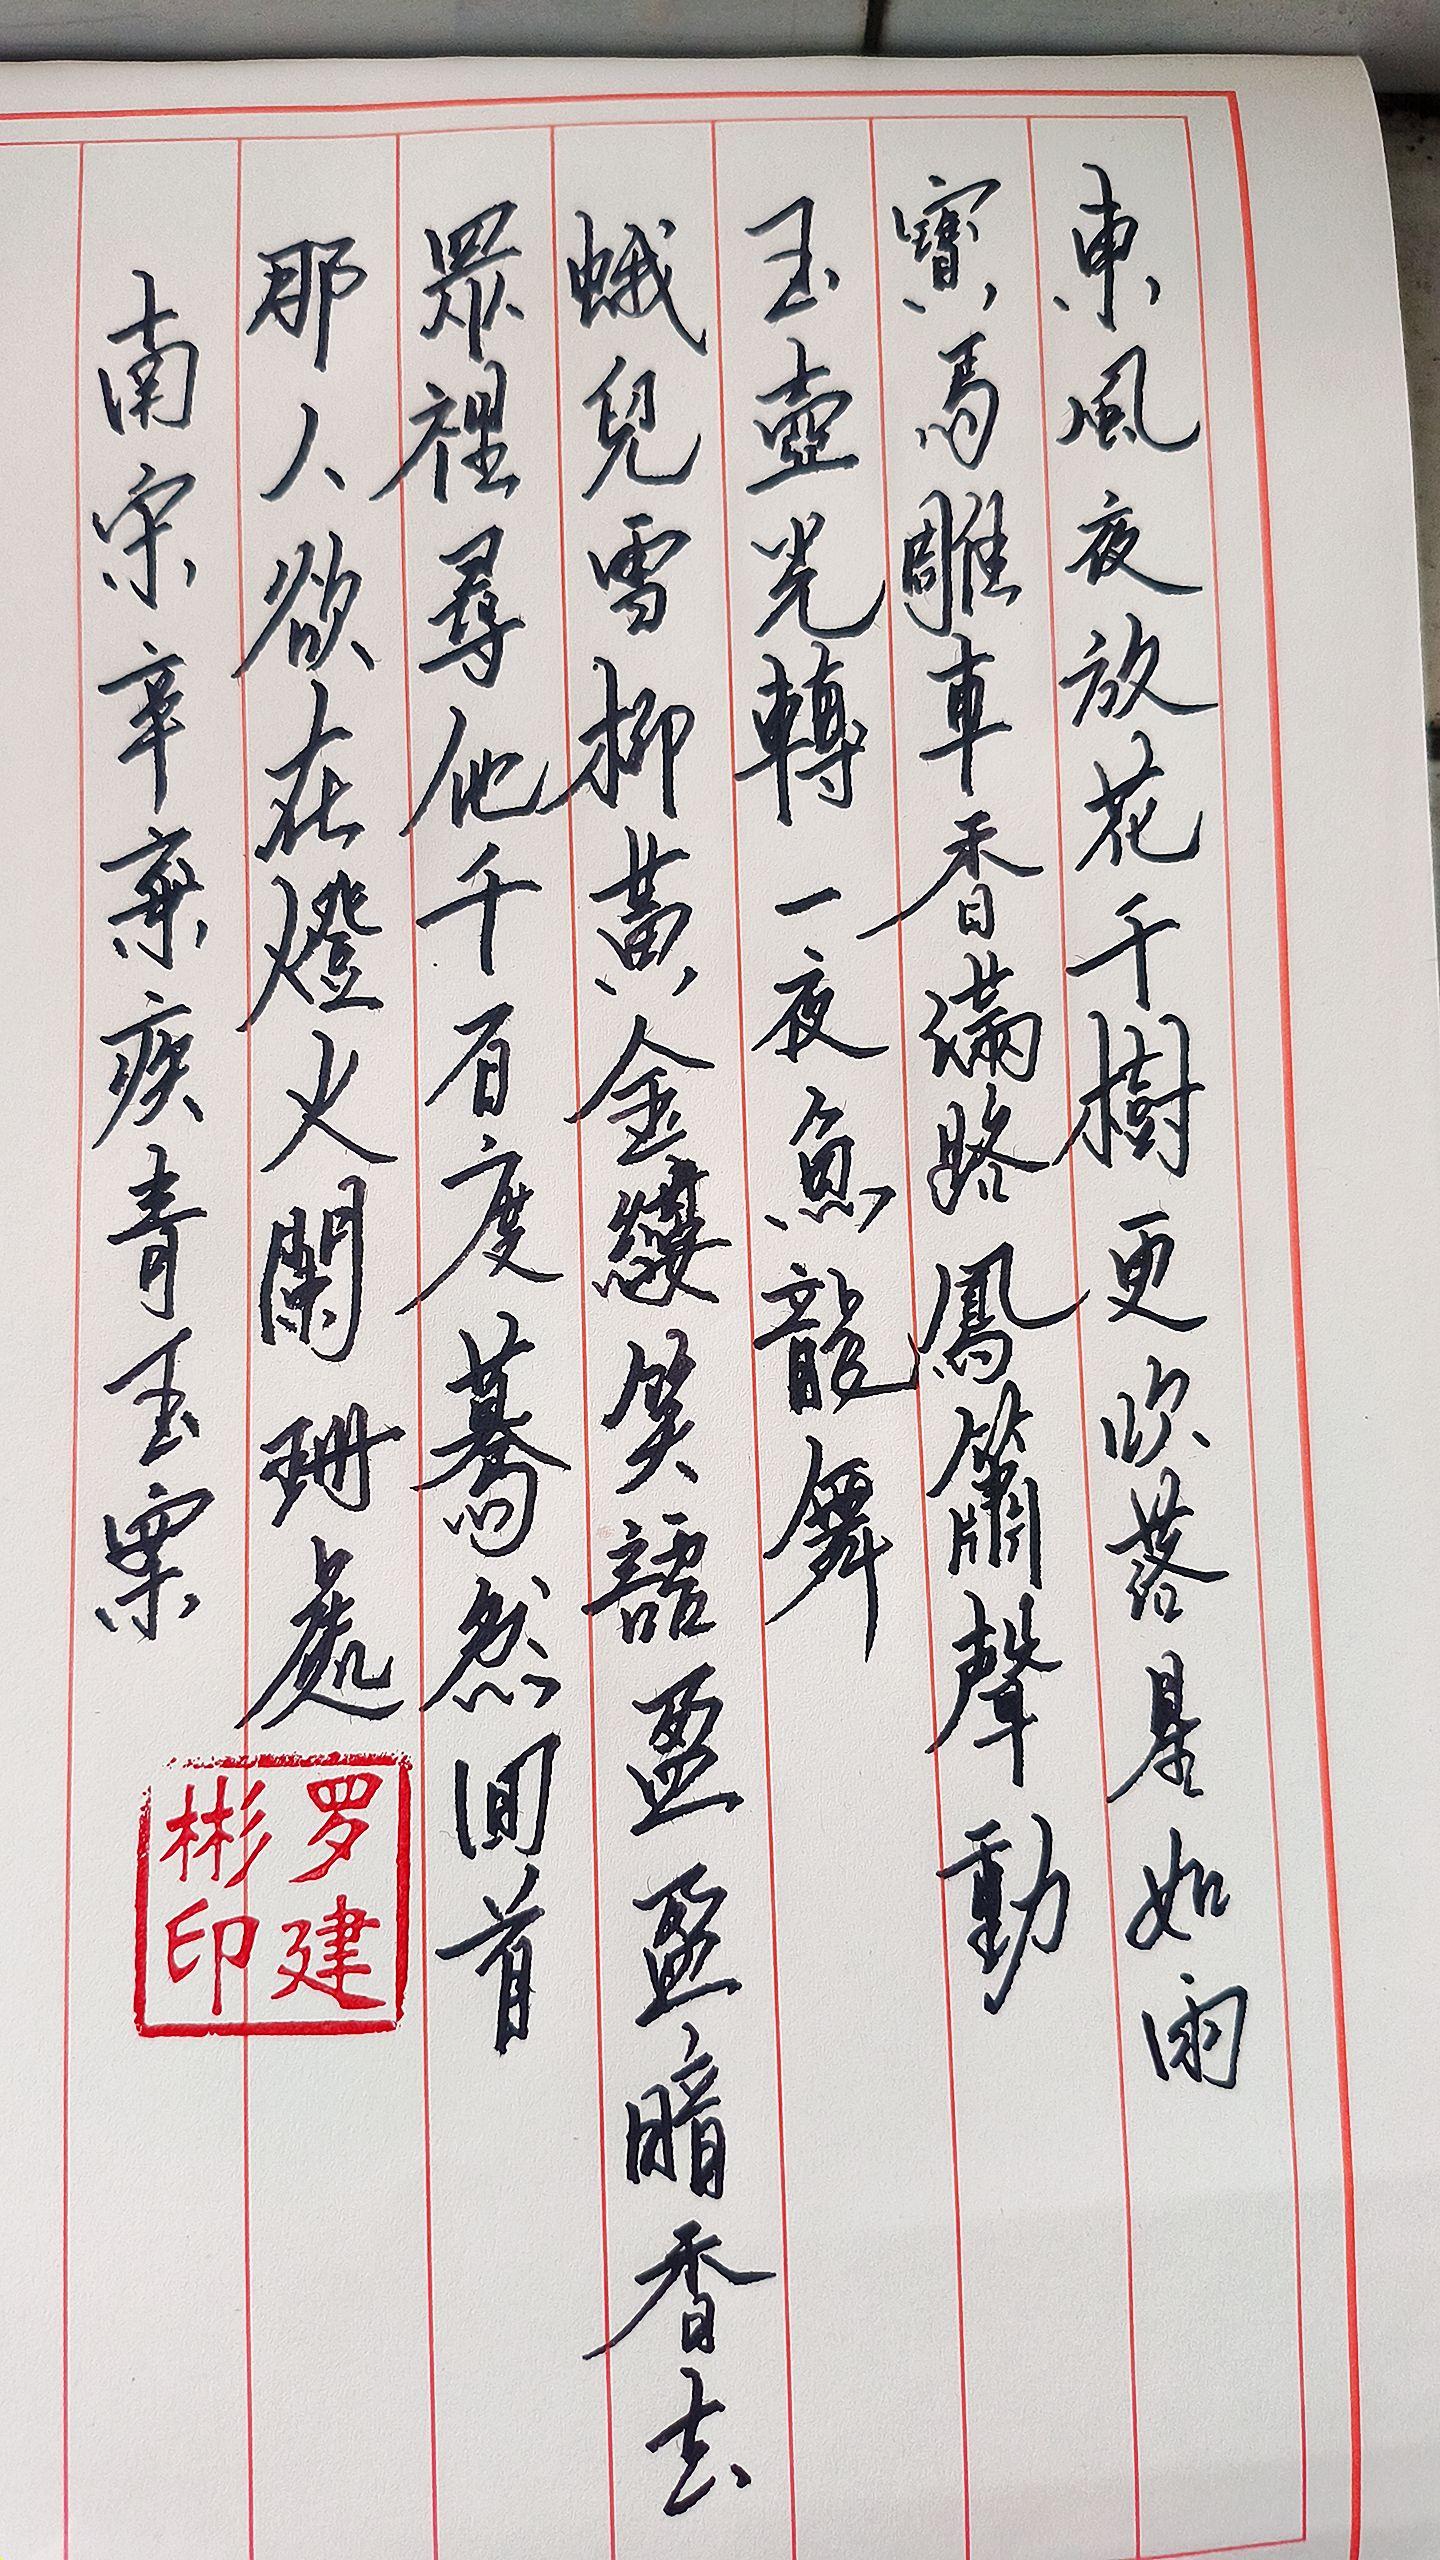 東風夜放花千樹更吹落星如雨
寶馬雕車香滿路鳳簫聲動
玉壺光轉一夜魚龍舞
蛾兒雪柳黃金縷笑語盈盈暗香去
眾裡尋他千百度驀然回首
那人欲在燈火闌珊處
南宋辛棄疾青玉案
罗建
彬印